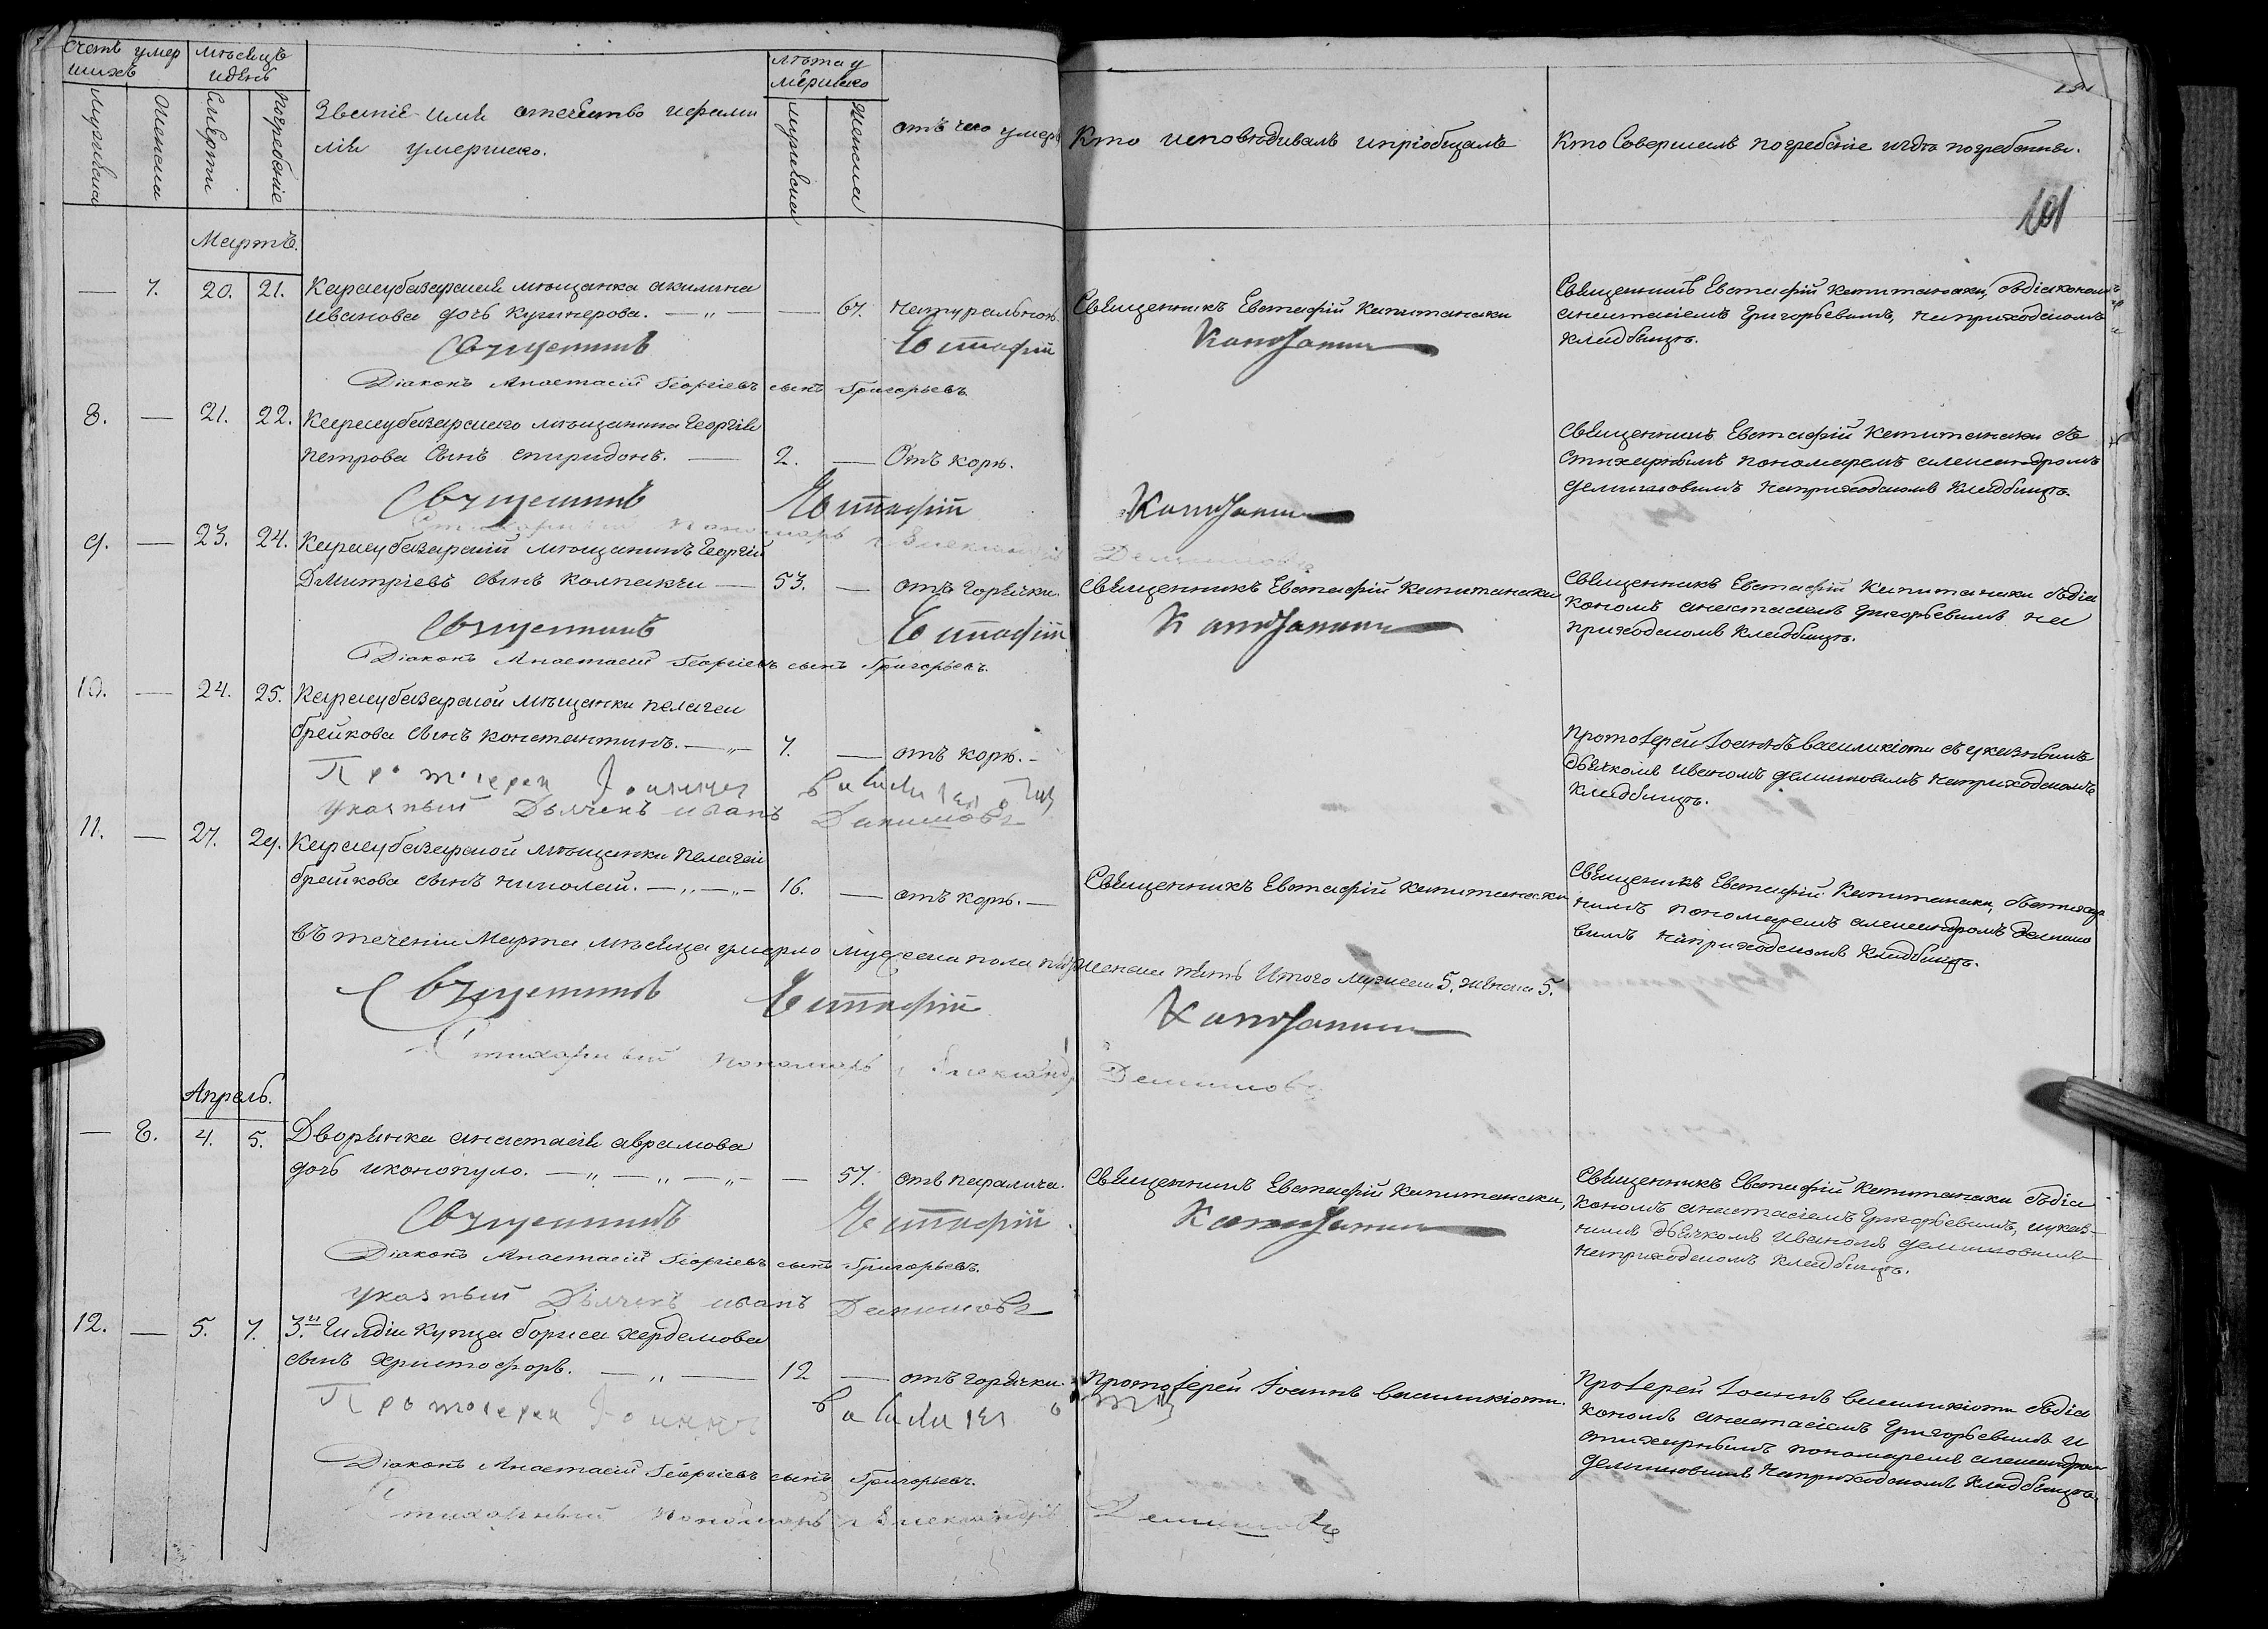 Счетъ умер
шихъ
Мѣсяцъ
и день
Мужеска
Женска
Смерти
Погребеніе
Званіе имя отечество и фами
лія умершаго.
Лѣта у
мершаго
Мужеска
Женска
отъ чего умеръ
Кто исповѣдивалъ и пріобщалъ
Кто совершилъ погребеніе и гдѣ погребенны.
101
Мартъ.
— 7. 20. 21. Карасубазарская мѣщанка акилина
Иванова дочь Кушнерова. — „ — — 67. натуральною. Священникъ Евстафій Капитанаки
Священникъ Евстафій Капитанаки, съ діакономъ
анастасіемъ Григорьевымъ, на приходскомъ
кладбищѣ.
Священникъ Евстафій Капитанаки
Діаконъ Анастасій Георгіевъ сынъ Григорьевъ
8. — 21. 22. Карасубазарскаго мѣщанина Георгія
Петрова сынъ спиридонъ. — 2. — Отъ кори.
Священникъ Евстафій Капитанаки съ
стихарнымъ пономаремъ александромъ
Демишовымъ на приходскомъ кладбищѣ.
Священникъ Евстафій Капитанаки
Стихарный пономарь Александръ Демишовъ
9. — 23. 24. Карасубазарскій мѣщанинъ Георгій
Дмитріевъ сынъ Колпакчи — 53. — отъ горячки. Священникъ Евстафій Капитанаки
Священникъ Евстафій Капитанаки съ діа
кономъ анастасіемъ Григорьевымъ на
приходскомъ кладбищѣ.
Священникъ Евстафій Капитанаки
Діаконъ Анастасій Георгіевъ сынъ Григорьевъ.
10. — 24. 25. Карасубазарской мѣщанки пелагеи
брейкова сынъ константинъ. — „ — 7. — отъ кори. —
Протоіерей Іоаннъ василикіоти съ указнымъ
дьячкомъ Иваномъ Демишовымъ на приходскомъ
кладбищѣ.
Протоіерей Іоаннъ Василикіоти
Указный Дьячекъ иванъ Демишовъ
11. — 27. 29. Карасубазарской мѣщанки Пелагеи
брейкова сынъ николай. — „ — „ — 16. — отъ кори. — Священникъ Евстафій Капитанаки
Священикъ Евстафій Капитанаки, съ стихар
нымъ пономаремъ александромъ Демишо
вымъ на приходскомъ кладбищѣ.
Въ теченіи Марта мѣсяца умерло мужеска пола пять женска пять Итого мужеска 5. женска 5.
Священникъ Евстафій Капитанаки
Стихарный пономарь Александръ Демишовъ
Апрель.
— 8. 4. 5. Дворянка анастасія аврамова
дочь икономопуло. — „ — „ — „ — — 57. отъ паралича. Священникъ Евстафій Капитанаки,
Священникъ Евстафій Капитанаки съ діа
кономъ анастасіемъ Григорьевымъ, и указ—
нымъ дьячкомъ Иваномъ Демишовымъ
на приходскомъ кладбищѣ.
Священникъ Евстафій Капитанаки
Діаконъ Анастасій Георгіевъ сынъ Григорьевъ.
Указный Дьячекъ иванъ Демишовъ
12. — 5. 7. 3.й Гилдіи Купца бориса хердемова
сынъ Христофоръ. — „ — 12 — отъ горячки. Протоіерей Іоаннъ василикіоти.
Проіерей Іоаннъ василикіоти съ діа
кономъ анастасіемъ Григорьевымъ и
стихарнымъ пономаремъ александром
Демишовымъ на приходскомъ кладбищѣ.
Протоіерей Іоаннъ Василикіоти
Діаконъ Анастасій Георгіевъ сынъ Григорьевъ.
Стихарный пономарь Александръ Демишовъ